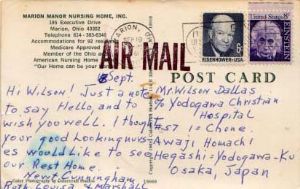 MARION MANOR NURSING HOME, INC.
195 Executive Drive
Marion, Ohio 43302
Telephone 614-383-6340
Accommodations for 92
Medicare Approved
Member of the Ohio and
American Nursing Home
"Our Home can be your
AIR MAIL
MARION, O
EISENHOWER·USA
8c
EINSTEIN
POST CARD
Sept.
Hi Wilson! Just a note
to say Hello, and to
wish you well. I thought
your good looking nurs-
es would like to see
our Rest Home.
Newt Cunningham
Ruth, Louisa & Marshall
Mr. Wilson Dallas
c/o Yodogawa Christian
Hospital
#57 1 Chone.
Awaji Homachi
Hegashi-Yodogawa-Ku
Osaka, Japan